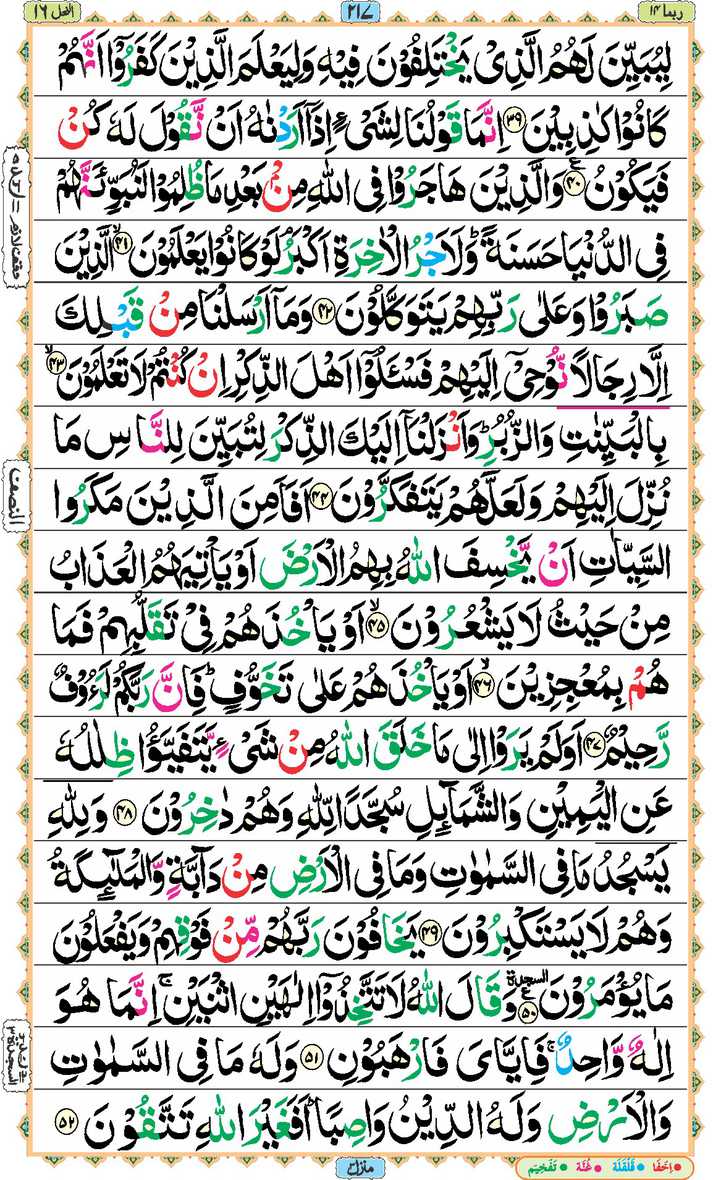 ربما ١٤
٢١٧
النحل ١٦
لِيُبَيِّنَ لَهُمُ الَّذِىْ يَخْتَلِفُوْنَ فِيْهِ وَلِيَعْلَمَ الَّذِيْنَ كَفَرُوْۤا اَنَّهُمْ
كَانُوْا كٰذِبِيْنَ ﴿٣٩﴾ اِنَّمَا قَوْلُنَا لِشَىْءٍ اِذَاۤ اَرَدْنٰهُ اَنْ نَّقُوْلَ لَهٗ كُنْ
فَيَكُوْنُ ﴿٤٠﴾ وَالَّذِيْنَ هَاجَرُوْا فِى اللّٰهِ مِنْۢ بَعْدِ مَا ظُلِمُوْا لَنُبَوِّئَنَّهُمْ
فِى الدُّنْيَا حَسَنَةً ؕ وَلَاَجْرُ الْاٰخِرَةِ اَكْبَرُ ۘ لَوْ كَانُوْا يَعْلَمُوْنَ ﴿٤١﴾ الَّذِيْنَ
صَبَرُوْا وَعَلٰى رَبِّهِمْ يَتَوَكَّلُوْنَ ﴿٤٢﴾ وَمَاۤ اَرْسَلْنَا مِنْ قَبْلِكَ
اِلَّا رِجَالًا نُّوْحِىْۤ اِلَيْهِمْ فَسْـَٔلُوْۤا اَهْلَ الذِّكْرِ اِنْ كُنْتُمْ لَا تَعْلَمُوْنَ ﴿٤٣﴾
بِالْبَيِّنٰتِ وَالزُّبُرِ ؕ وَاَنْزَلْنَاۤ اِلَيْكَ الذِّكْرَ لِتُبَيِّنَ لِلنَّاسِ مَا
نُزِّلَ اِلَيْهِمْ وَلَعَلَّهُمْ يَتَفَكَّرُوْنَ ﴿٤٤﴾ اَفَاَمِنَ الَّذِيْنَ مَكَرُوا
السَّيِّاٰتِ اَنْ يَّخْسِفَ اللّٰهُ بِهِمُ الْاَرْضَ اَوْ يَاْتِيَهُمُ الْعَذَابُ
مِنْ حَيْثُ لَا يَشْعُرُوْنَ ﴿٤٥﴾ اَوْ يَاْخُذَهُمْ فِىْ تَقَلُّبِهِمْ فَمَا
هُمْ بِمُعْجِزِيْنَ ﴿٤٦﴾ اَوْ يَاْخُذَهُمْ عَلٰى تَخَوُّفٍ ؕ فَاِنَّ رَبَّكُمْ لَرَءُوْفٌ
رَّحِيْمٌ ﴿٤٧﴾ اَوَلَمْ يَرَوْا اِلٰى مَا خَلَقَ اللّٰهُ مِنْ شَىْءٍ يَّتَفَيَّؤُا ظِلٰلُهٗ
عَنِ الْيَمِيْنِ وَالشَّمَآئِلِ سُجَّدًا لِّلّٰهِ وَهُمْ دٰخِرُوْنَ ﴿٤٨﴾ وَلِلّٰهِ
يَسْجُدُ مَا فِى السَّمٰوٰتِ وَمَا فِى الْاَرْضِ مِنْ دَآبَّةٍ وَّالْمَلٰٓئِكَةُ
وَهُمْ لَا يَسْتَكْبِرُوْنَ ﴿٤٩﴾ يَخَافُوْنَ رَبَّهُمْ مِّنْ فَوْقِهِمْ وَيَفْعَلُوْنَ
مَا يُؤْمَرُوْنَ ﴿٥٠﴾ السجدة وَقَالَ اللّٰهُ لَا تَتَّخِذُوْۤا اِلٰهَيْنِ اثْنَيْنِ ۚ اِنَّمَا هُوَ
اِلٰهٌ وَّاحِدٌ ۚ فَاِيَّاىَ فَارْهَبُوْنِ ﴿٥١﴾ وَلَهٗ مَا فِى السَّمٰوٰتِ
وَالْاَرْضِ وَلَهُ الدِّيْنُ وَاصِبًا ؕ اَفَغَيْرَ اللّٰهِ تَتَّقُوْنَ ﴿٥٢﴾
النصف
السجدة ٣
منزل ٣
اِخْفَا
قَلْقَلَة
غُنَّة
تَفْخِيْم